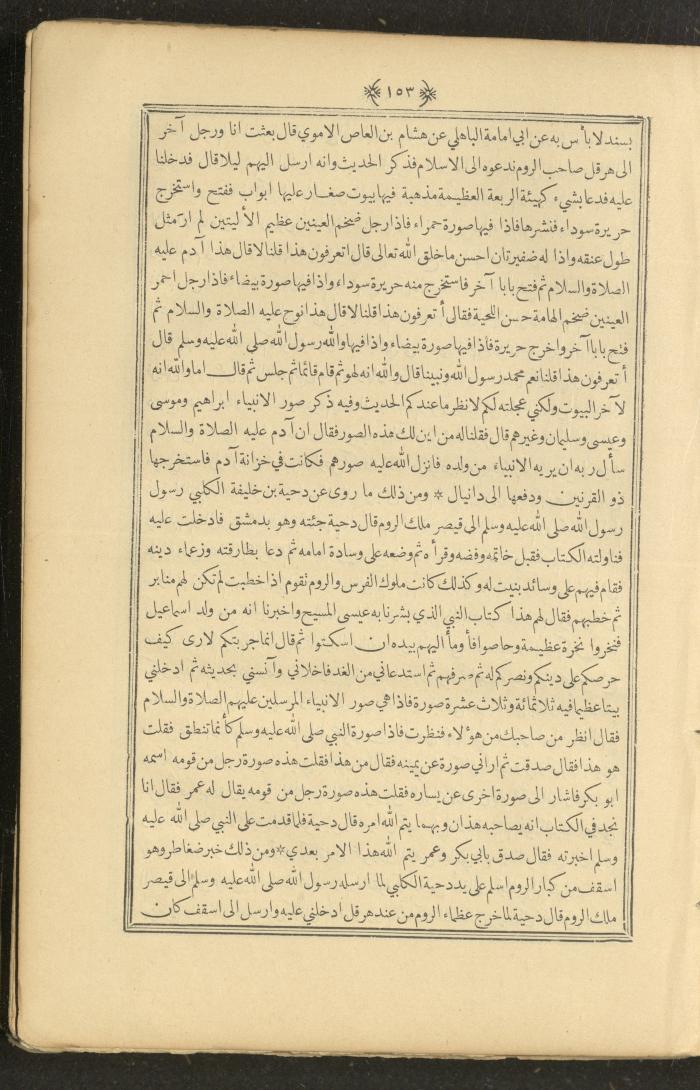 ١٥٣
بسند لا بأس به عن ابي امامة الباهلي عن هشام بن العاص الاموي قال بعثت انا ورجل آخر
الى هرقل صاحب الروم ندعوه الى الاسلام فذكر الحديث وانه ارسل اليهم ليلا قال فدخلنا
عليه فدعا بشيء كهيئة الربعة العظيمة مذهبة فيها بيوت صغار عليها ابواب ففتح واستخرج
حريرة سوداء فنشرها فاذا فيها صورة حمراء فاذا رجل ضخم العينين عظيم الأليتين لم ار مثل
طول عنقه واذا له ضفيرتان احسن ما خلق الله تعالى قال اتعرفون هذا قلنا لا قال هذا آدم عليه
الصلاة والسلام ثم فتح بابا آخر فاستخرج منه حريرة سوداء واذا فيها صورة بيضاء فاذا رجل احمر
العينين ضخم الهامة حسن اللحية فقال أتعرفون هذا قلنا لا قال هذا نوح عليه الصلاة والسلام ثم
فتح بابا آخر واخرج حريرة فاذا فيها صورة بيضاء واذا فيها والله رسول الله صلى الله عليه وسلم قال
أتعرفون هذا قلنا نعم محمد رسول الله ونبينا قال والله انه لهو ثم قام قائما ثم جلس ثم قال اما والله انه
لآخر البيوت ولكني عجلته لكم لانظر ما عندكم الحديث وفيه ذكر صور الانبياء ابراهيم وموسى
وعيسى وسليمان وغيرهم قال فقلنا له من اين لك هذه الصور فقال ان آدم عليه الصلاة والسلام
سأل ربه ان يريه الانبياء من ولده فانزل الله عليه صورهم فكانت في خزانة آدم فاستخرجها
ذو القرنين ودفعها الى دانيال * ومن ذلك ما روى عن دحية بن خليفة الكلبي رسول
رسول الله صلى الله عليه وسلم الى قيصر ملك الروم قال دحية جئته وهو بدمشق فادخلت عليه
فناولته الكتاب فقبل خاتمه وفضه وقرأه ثم وضعه على وسادة امامه ثم دعا بطارقته وزعماء دينه
فقام فيهم على وسائد بنيت له وكذلك كانت ملوك الفرس والروم تقوم اذا خطبت لم تكن لهم منابر
ثم خطبهم فقال لهم هذا كتاب النبي الذي بشرنا به عيسى المسيح واخبرنا انه من ولد اسماعيل
فنخروا نخرة عظيمة وحاصوا فأومأ اليهم بيده ان اسكتوا ثم قال انما جربتكم لارى كيف
حرصكم على دينكم ونصركم له ثم صرفهم ثم استدعاني من الغد فاخلاني وآنسني بحديثه ثم ادخلني
بيتا عظيما فيه ثلاثمائة وثلاث عشرة صورة فاذا هي صور الانبياء المرسلين عليهم الصلاة والسلام
فقال انظر من صاحبك من هؤلاء فنظرت فاذا صورة النبي صلى الله عليه وسلم كأنما تنطق فقلت
هو هذا فقال صدقت ثم اراني صورة عن يمينه فقال من هذا فقلت هذه صورة رجل من قومه اسمه
ابو بكر فاشار الى صورة اخرى عن يساره فقلت هذه صورة رجل من قومه يقال له عمر فقال انا
نجد في الكتاب انه يصاحبه هذان وبهما يتم الله امره قال دحية فلما قدمت على النبي صلى الله عليه
وسلم اخبرته فقال صدق بابي بكر وعمر يتم الله هذا الامر بعدي * ومن ذلك خبر ضغاطر وهو
اسقف من كبار الروم اسلم على يد دحية الكلبي لما ارسله رسول الله صلى الله عليه وسلم الى قيصر
ملك الروم قال دحية لما خرج عظماء الروم من عند هرقل ادخلني عليه وارسل الى اسقف كان